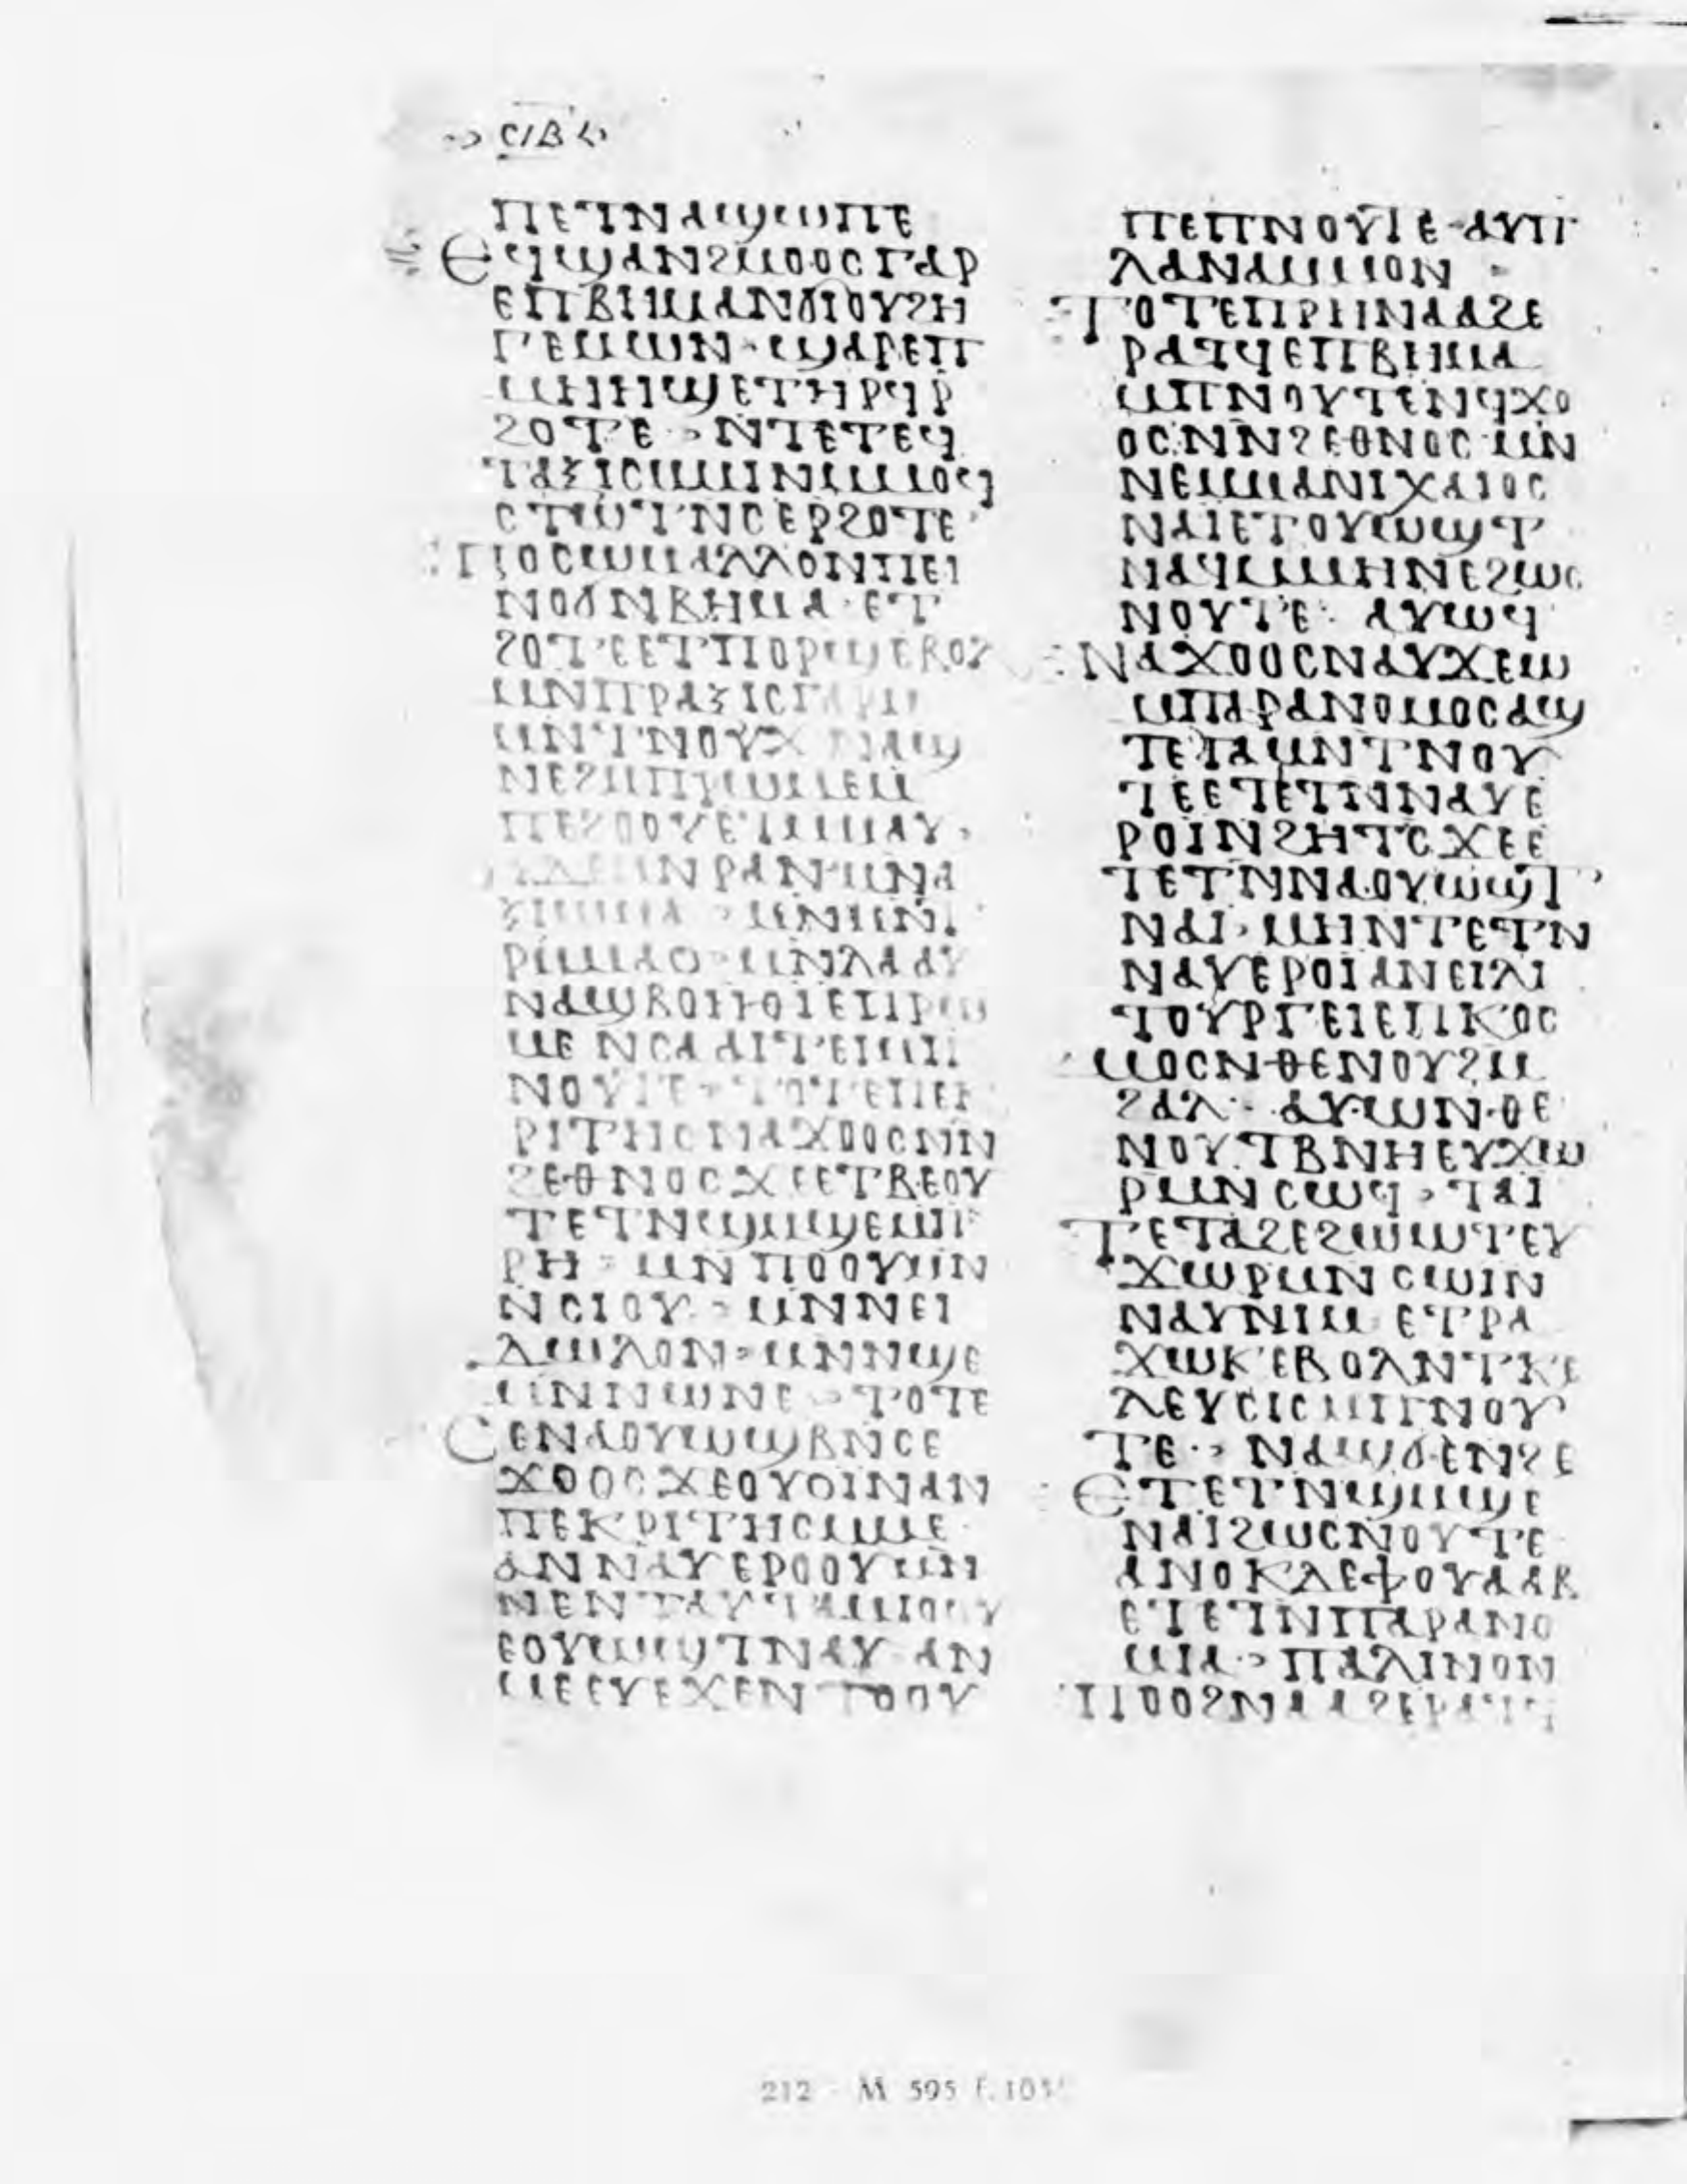 ⲥⲓⲃ
ⲡⲉⲧⲛⲁϣⲱⲡⲉ
Ⲉϥϣⲁⲛϩⲙⲟⲟⲥⲅⲁⲣ
ⲉⲡⲃⲏⲙⲁⲛϭⲓⲟⲩϩⲏ
ⲅⲉⲙⲱⲛ · ϣⲁⲣⲉⲡ
ⲙⲏⲏϣⲉⲧⲏⲣϥⲣ
ϩⲟⲧⲉ · ⲛⲧⲉⲧⲉϥ
ⲧⲁⲝⲓⲥⲙⲙⲓⲛⲙⲙⲟϥ
ⲥⲧⲱⲧⲛⲥⲉⲣϩⲟⲧⲉ
ⲡⲟⲥⲱⲙⲁⲗⲗⲟⲛⲡⲉⲓ
ⲛⲟϭⲛⲃⲏⲙⲁ · ⲉⲧ
ϩⲟⲧⲉⲉⲧⲡⲟⲣϣⲉⲃⲟⲗ
ⲙⲛⲡⲣⲁⲝⲓⲥⲅⲁⲣ
ⲙⲛⲧⲛⲟⲩϫ ⲛⲁϣ
ⲡⲉϩⲟⲟⲩⲉⲧⲙⲙⲁⲩ ·
ⲣⲁⲛ ⲙⲛⲁ
ⲣⲙⲙⲁⲟ · ⲙⲛⲗⲁⲁⲩ
ⲛⲁϣⲃⲟⲏⲑⲓⲉⲡⲣⲱ
ⲙⲉ ⲛⲥⲁⲁⲓⲧⲉⲓⲙⲡ
ⲛⲟⲩⲧⲉ · ⲧⲟⲧⲉⲡⲉⲕ
ⲣⲓⲧⲏⲥⲛⲁϫⲟⲟⲥⲛⲛ
ϩⲉⲑⲛⲟⲥϫⲉⲉⲧⲃⲉⲟⲩ
ⲧⲉⲧⲛϣⲙϣⲉⲙⲡ
ⲣⲏ · ⲙⲛⲡⲟⲟϩⲙⲛ
ⲛⲥⲓⲟⲩ · ⲙⲛⲛⲉⲓ
ⲇⲱⲗⲟⲛ · ⲙⲛⲛϣⲉ
ⲙⲛⲛⲱⲛⲉ · ⲧⲟⲧⲉ
Ⲥⲉⲛⲁⲟⲩⲱϣⲃⲛⲥⲉ
ϫⲟⲟⲥϫⲉⲟⲩⲟⲓⲛⲁⲛ
ⲡⲉⲕⲣⲓⲧⲏⲥⲙⲙⲉ ·
ⲁⲛⲛⲁⲩⲉⲣⲟⲟⲩⲙⲛ
ⲛⲉⲛⲧⲁⲩⲧⲁⲙⲓⲟⲟⲩ
ⲉⲟⲩⲱϣⲧⲛⲁⲩ ⲁⲛ
ⲙⲉⲉⲩⲉϫⲉⲛⲧⲟⲟⲩ
ⲡⲉⲡⲛⲟⲩⲧⲉ · ⲁⲩⲡ
ⲗⲁⲛⲁⲙⲙⲟⲛ ·
Ⲧⲟⲧⲉⲡⲣⲏⲛⲁⲁϩⲉ
ⲣⲁⲧϥⲉⲡⲃⲏⲙⲁ
ⲙⲡⲛⲟⲩⲧⲉⲛϥϫⲟ
ⲟⲥⲛⲛϩⲉⲑⲛⲟⲥ ⲙⲛ
ⲛⲉⲙⲙⲁⲛⲓⲭⲁⲓⲟⲥ
ⲛⲁⲓⲉⲧⲟⲩⲱϣⲧ
ⲛⲁϥⲙⲙⲏⲛⲉϩⲱⲥ
ⲛⲟⲩⲧⲉ · ⲁⲩⲱϥ
Ⲛⲁϫⲟⲟⲥⲛⲁⲩϫⲉⲱ
ⲙⲡⲁⲣⲁⲛⲟⲙⲟⲥⲁϣ
ⲧⲉⲧⲁⲙⲛⲧⲛⲟⲩ
ⲧⲉⲉⲧⲉⲧⲛⲛⲁⲩⲉ
ⲣⲟⲓⲛϩⲏⲧⲥϫⲉⲉ
ⲧⲉⲧⲛⲛⲁⲟⲩⲱϣⲧ
ⲛⲁⲓ · ⲙⲏⲛⲧⲉⲧⲛ
ⲛⲁⲩⲉⲣⲟⲓⲁⲛⲉⲓⲗⲓ
ⲧⲟⲩⲣⲅⲉⲓⲉⲡⲕⲟⲥ
ⲙⲟⲥⲛⲑⲉⲛⲟⲩϩⲙ
ϩⲁⲗ · ⲁⲩⲱⲛⲑⲉ
ⲛⲟⲩⲧⲃⲛⲏⲉⲩϫⲱ
ⲣⲙⲛⲥⲱϥ · ⲧⲁⲓ
Ⲧⲉⲧⲁϩⲉϩⲱⲱⲧⲉⲩ
ϫⲱⲣⲙⲛⲥⲱⲓⲛ
ⲛⲁⲩⲛⲓⲙ ⲉⲧⲣⲁ
ϫⲱⲕⲉⲃⲟⲗⲛⲧⲕⲉ
ⲗⲉⲩⲥⲓⲥⲙⲡⲛⲟⲩ
ⲧⲉ · ⲛⲁϣϭⲉⲛϩⲉ
Ⲉⲧⲉⲧⲛϣⲙϣⲉ
ⲛⲁⲓϩⲱⲥⲛⲟⲩⲧⲉ
ⲁⲛⲟⲕⲁⲉϥⲟⲩⲁⲁⲃ
ⲉⲧⲉⲧⲛⲡⲁⲣⲁⲛⲟ
ⲙⲓⲁ · ⲡⲁⲗⲓⲛⲟⲛ
Ⲡⲟⲟϩⲛⲁⲁϩⲉⲣⲁⲧϥ
212 M 595 f. 105